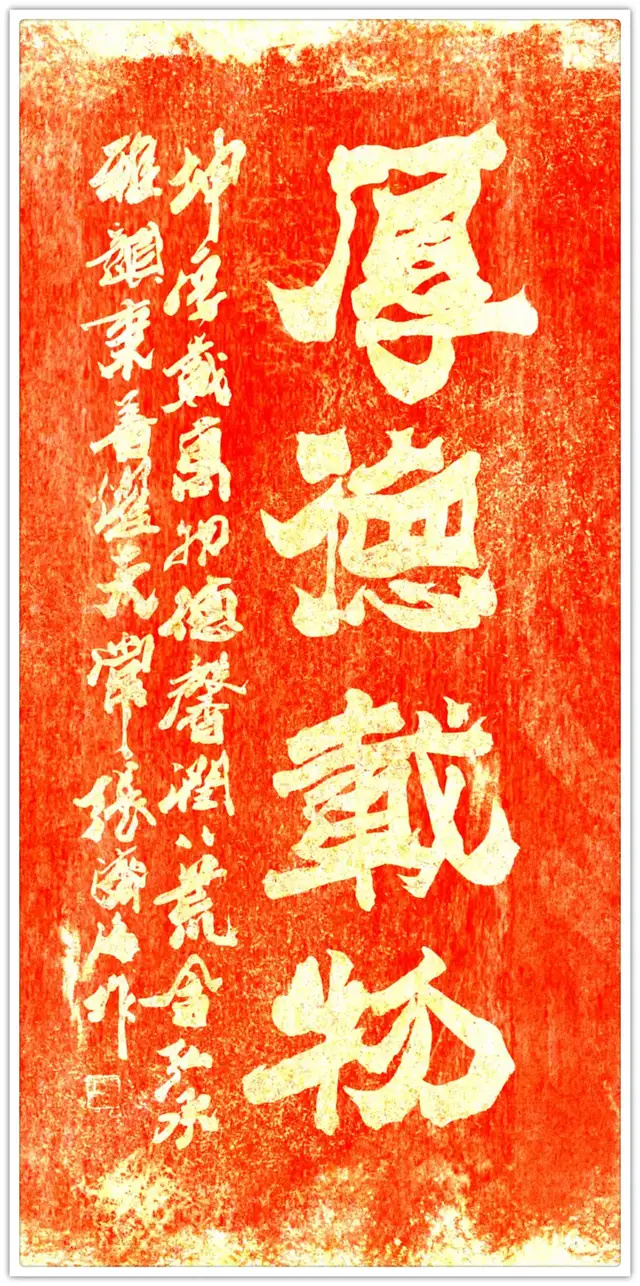 厚德載物
坤厚載萬物德馨潤八荒含弘永
雅韻秉善耀天常張濟作